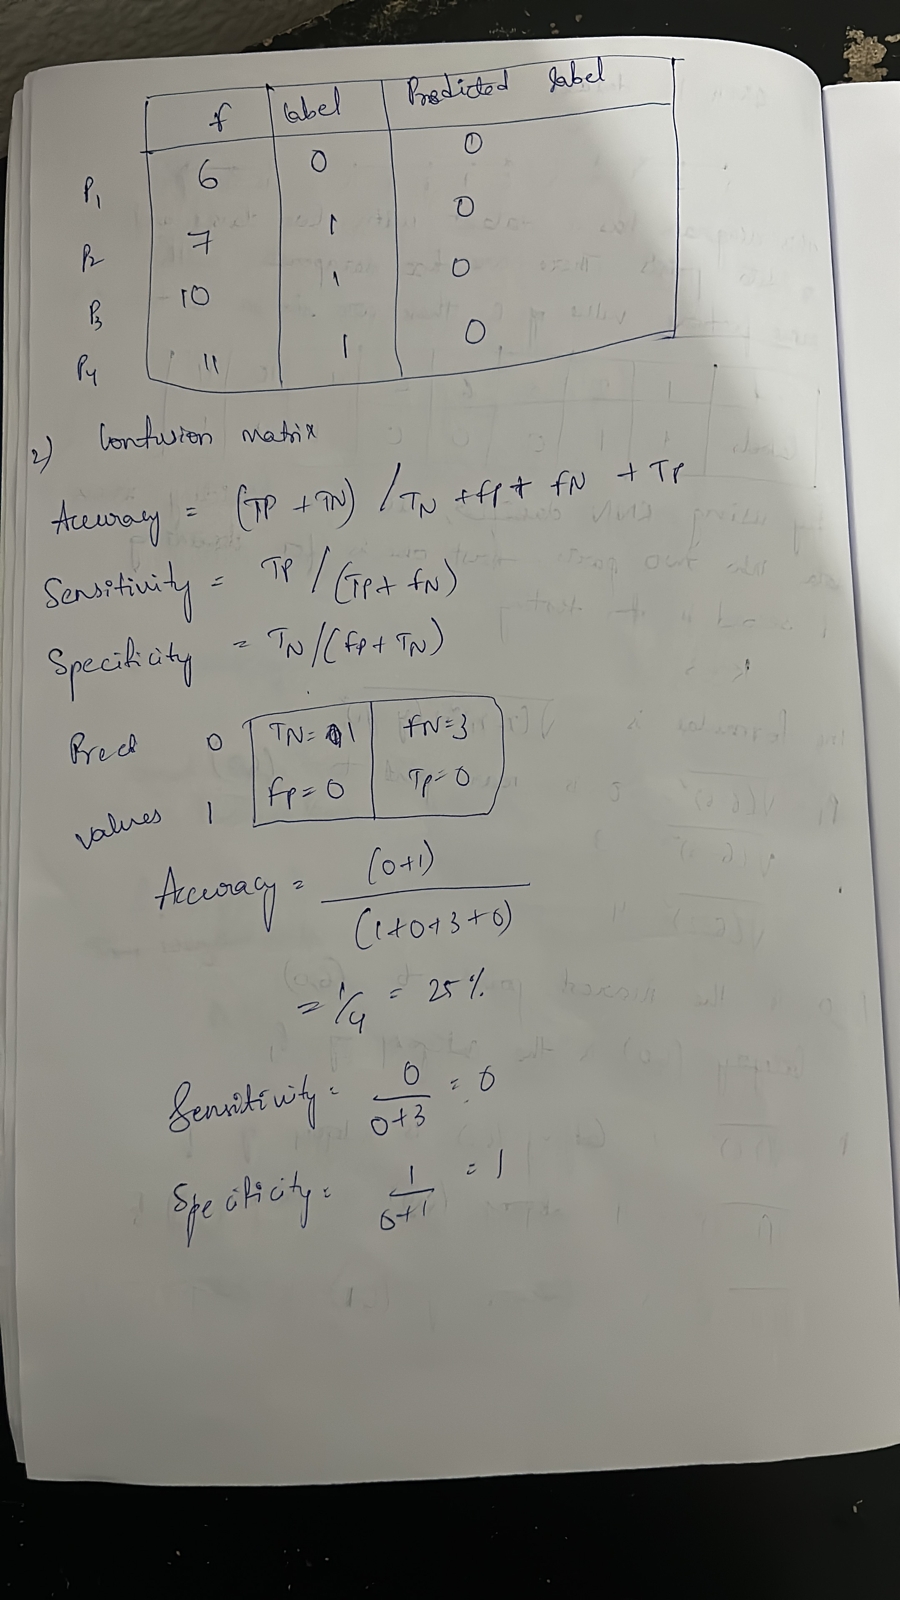 f label Predicted label
P1 6 0 0
P2 7 1 0
P3 10 1 0
P4 11 1 0
2) Confusion matrix
Accuracy = (TP + TN) / TN + fP + fN + TP
Sensitivity = TP / (TP + fN)
Specificity = TN / (fP + TN)
Pred 0 TN = 1 fN = 3
values 1 fP = 0 TP = 0
Accuracy = (0+1)
(1+0+3+0)
= 1/4 = 25%
Sensitivity = 0 / 0+3 = 0
Specificity = 1 / 0+1 = 1